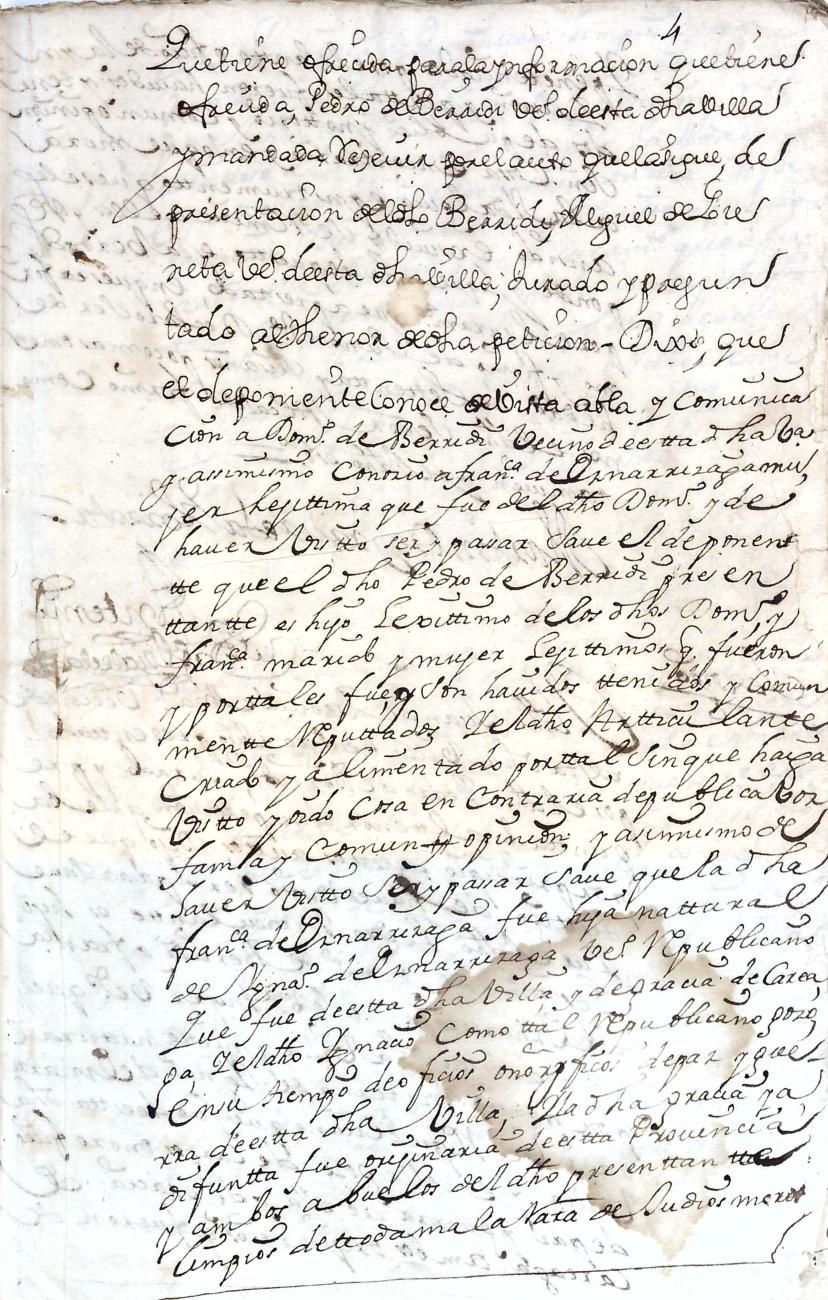 4
Que tiene ofreuida para la ynformacion que tiene
ofreuida, Pedro de Berridi Veº. de esta dha villa
y mandada reçeuir por el auto que la sigue, de
presentacion del dho Berridi, Miguel de Lore
neta Veº. de esta dha villa, Jurado y pregun
tado al thenor de dha peticion - Dixo, que
el deponiente Conoce de Vista abla y Comunica
cion a Domº. de Berridi Vecino de estta dha Vª
y assimismo Conozio a franᶜᵃ de Ernarrizaga mu
jer lejittima que fue del dho Domº. y de
haver Vistto ser y pasar save el deponen
tte que el dho Pedro de Berridi presen
ttantte es hijo Lexittimo de los dhos Domº. y
franᶜᵃ. marido y mujer Lejittimos q. fueron
y por ttales fue y son havidos ttenidos y Comun
mentte Reputtados Y el dho Artticulante
Criado y alimentado por ttal sin que haiga
Vistto y oido Cosa en Contrario de publica Voz
fama y Comun opinion, y asimismo de
haver Vistto ser y passar save que la dha
franᶜᵃ de Ernarrizaga fue hija nattural
de Ygnaº. de Ernarrizaga Veº. Republicano
que fue de estta dha Villa y de Gracia de Carea
ga, Y el dho Ygnacio Como ttal Republicano gozo
en su tiempo de oficios onorificos de paz y gue
rra de estta dha Villa, Y la dha gracia ya
difuntta fue orijinaria de estta Provincia
y ambos abuelos del dho presenttantte
limpios de ttoda mala Raza de Judios moros